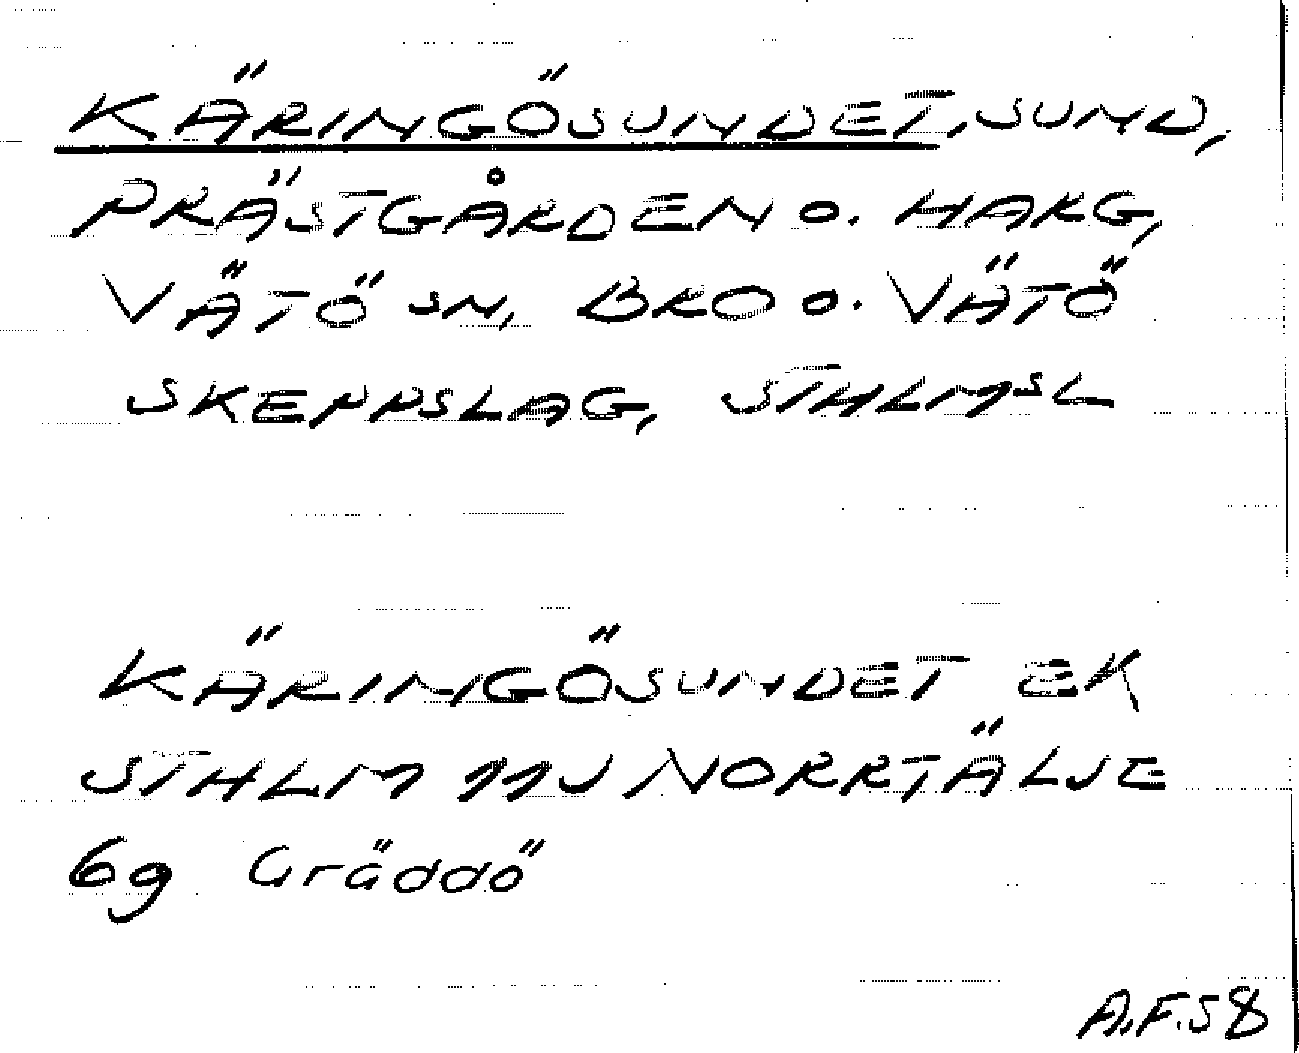 KÄRINGÖSUNDET, SUND,
PRÄSTGÅRDEN O. HARG,
VÄTÖ SN, BRO O. VÄTÖ
SKEPPSLAG, STHLMSL
KÄRINGÖSUNDET EK
STHLM 11J NORRTÄLJE
6g Gräddö
A.F.58